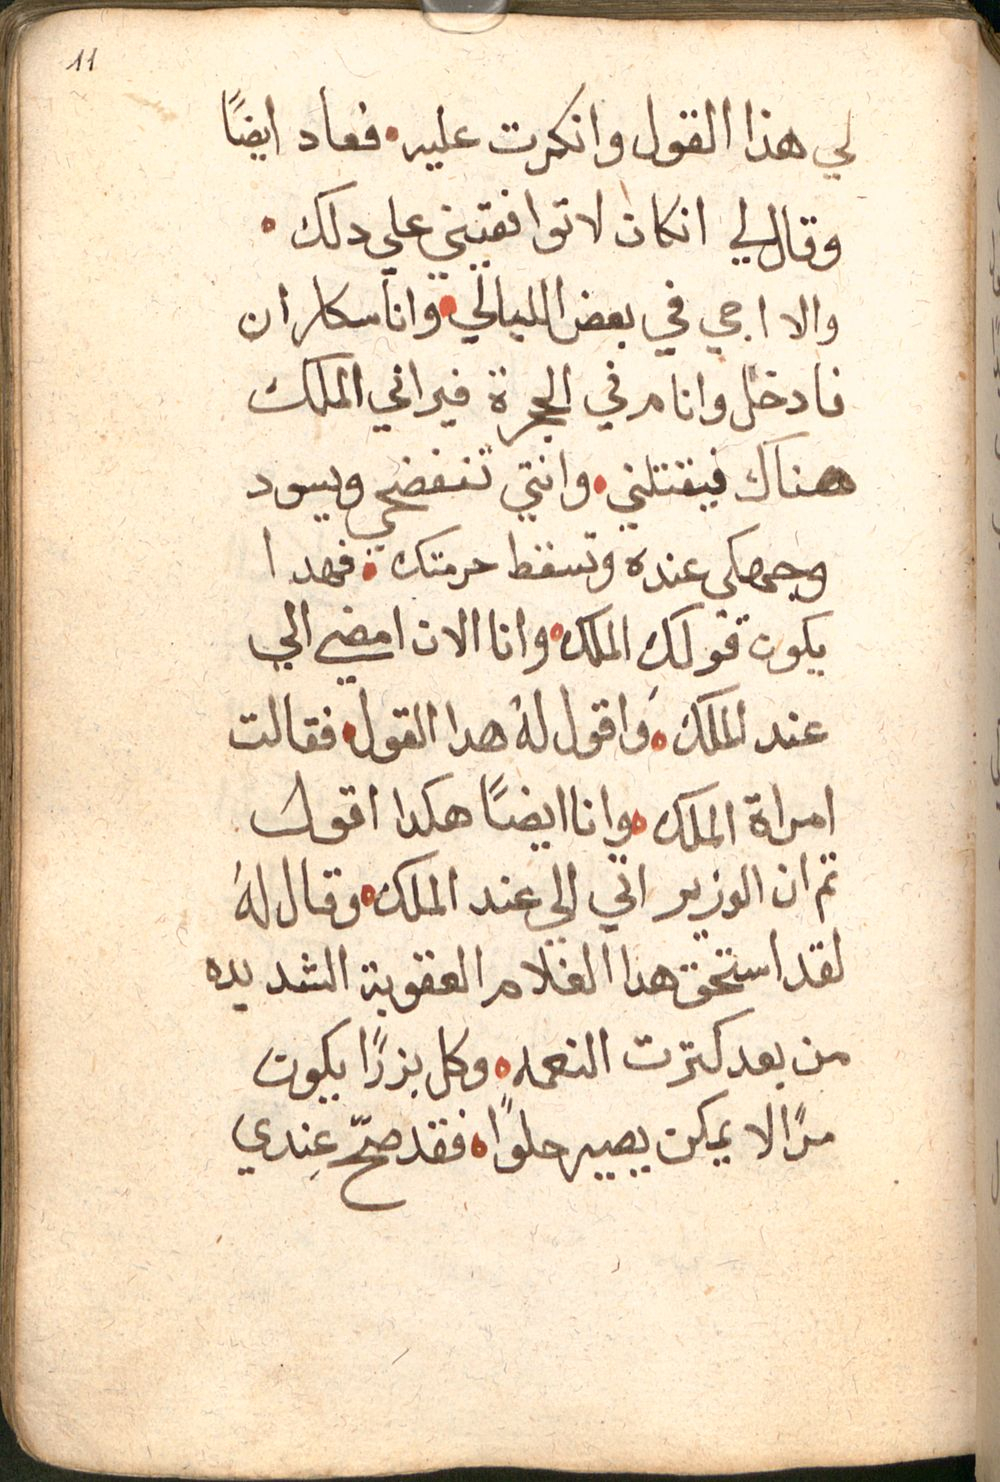 11
لي هذا القول وانكرت عليه. فعاد ايضًا
وقال لي انكان لا توافقيني علي دلك .
والا اجي في بعض الليالي. وانا سكاران
نادخل وانام في الحجرة فيراني الملك
هناك فيقتلني. وانتي تنفضحي ويسود
وجهكي عنده وتسقط حرمتك . فهدا
يكون قولك الملك. وانا الان امضي الي
عند الملك. واقول لهُ هدا القول. فقالت
امراة الملك. وانا ايضًا هكدا اقول
تم ان الوزير اتي الي عند الملك. وقال لهُ
لقد استحق هدا الغلام العقوبة الشديده
من بعد كترت النعمه. وكل بزرًا يكون
مرًا لا يمكن يصير حلوًا. فقد صحّ عِندي